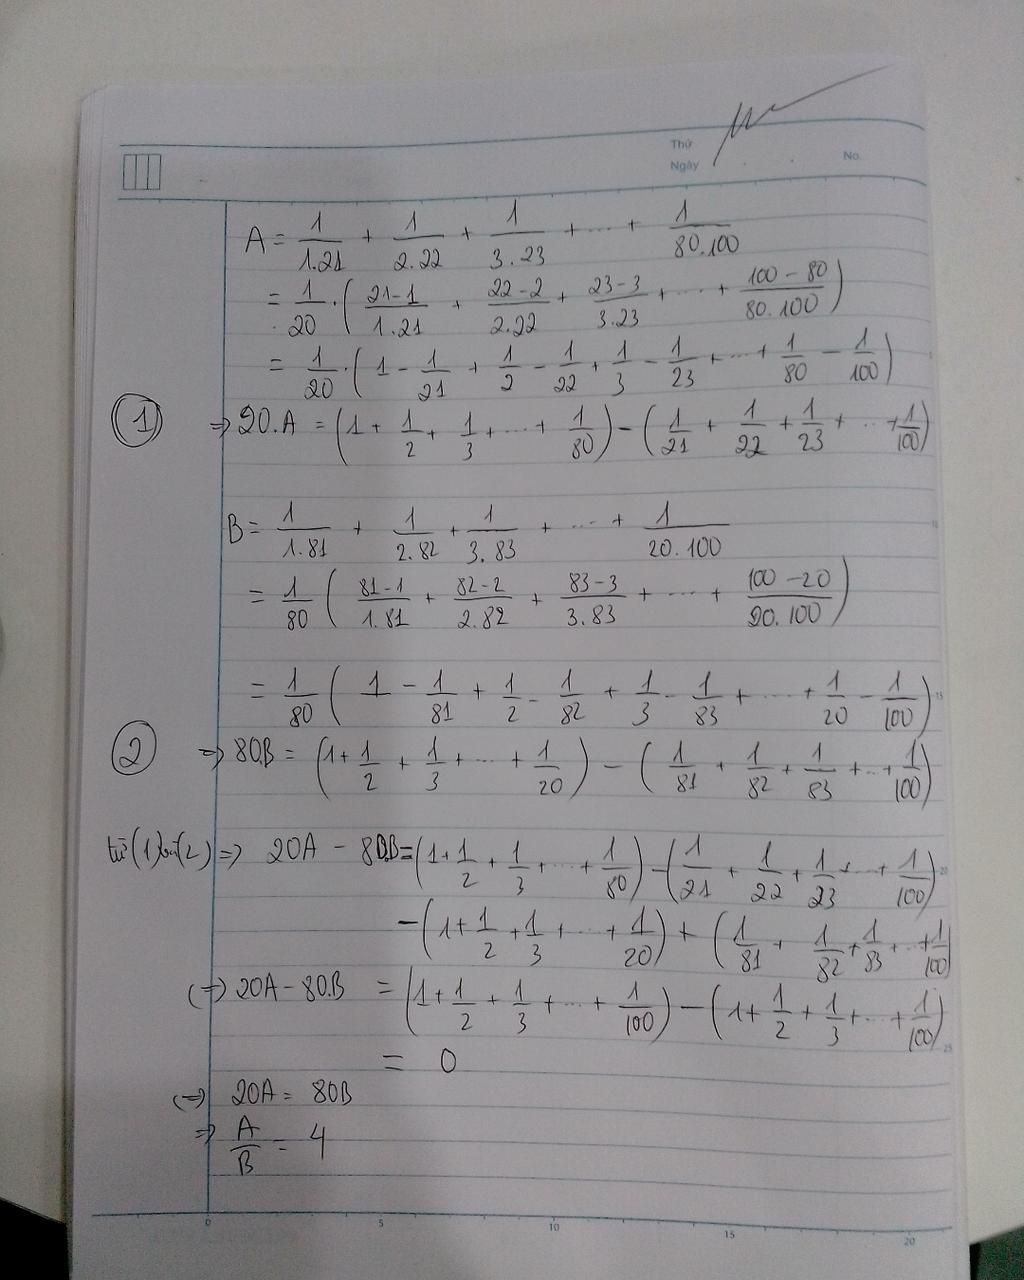 Thứ
Ngày No.
A = 1/1.21 + 1/2.22 + 1/3.23 + ... + 1/80.100
= 1/20 . ( 21-1/1.21 + 22-2/2.22 + 23-3/3.23 + ... + 100-80/80.100 )
= 1/20 . ( 1 - 1/21 + 1/2 - 1/22 + 1/3 - 1/23 + ... + 1/80 - 1/100 )
(1) => 20.A = ( 1 + 1/2 + 1/3 + ... + 1/80 ) - ( 1/21 + 1/22 + 1/23 + ... + 1/100 )
B = 1/1.81 + 1/2.82 + 1/3.83 + ... + 1/20.100
= 1/80 ( 81-1/1.81 + 82-2/2.82 + 83-3/3.83 + ... + 100-20/20.100 )
= 1/80 ( 1 - 1/81 + 1/2 - 1/82 + 1/3 - 1/83 + ... + 1/20 - 1/100 )
(2) => 80.B = ( 1 + 1/2 + 1/3 + ... + 1/20 ) - ( 1/81 + 1/82 + 1/83 + ... + 1/100 )
từ (1) (2) => 20A - 80.B = ( 1 + 1/2 + 1/3 + ... + 1/80 ) - ( 1/21 + 1/22 + 1/23 + ... + 1/100 )
- ( 1 + 1/2 + 1/3 + ... + 1/20 ) + ( 1/81 + 1/82 + 1/83 + ... + 1/100 )
(=) 20A - 80.B = ( 1 + 1/2 + 1/3 + ... + 1/100 ) - ( 1 + 1/2 + 1/3 + ... + 1/100 )
= 0
(=) 20A = 80B
=> A/B = 4
0 5 10 15 20